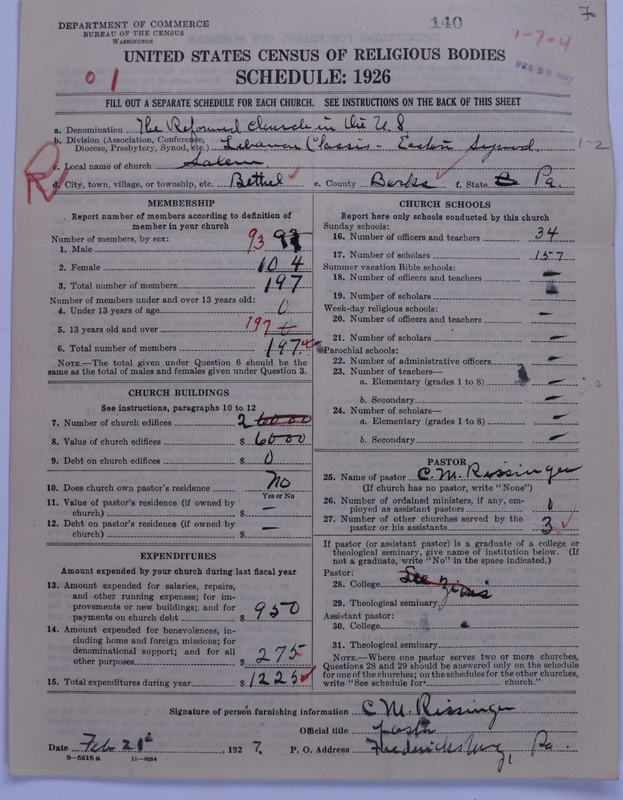 DEPARTMENT OF COMMERCE
BUREAU OF THE CENSUS
WASHINGTON
140
7
1-7-4
UNITED STATES CENSUS OF RELIGIOUS BODIES
SCHEDULE: 1926
01
FILL OUT A SEPARATE SCHEDULE FOR EACH CHURCH. SEE INSTRUCTIONS ON THE BACK OF THIS SHEET
a. Denomination The Reformed Church in the U.S
b. Division (Association, Conference, Diocese, Presbytery, Synod, etc.) Lebanon Classis - Eastern Synod. 1-2
c. Local name of church Salem
R
d. City, town, village, or township, etc. Bethel e. County Berks f. State Pa.
MEMBERSHIP
Report number of members according to definition of
member in your church
Number of members, by sex:
1. Male 93
2. Female 104
3. Total number of members 197
Number of members under and over 13 years old:
4. Under 13 years of age 0
5. 13 years old and over 197
6. Total number of members 197
NOTE.—The total given under Question 6 should be the
same as the total of males and females given under Question 3.
CHURCH BUILDINGS
See instructions, paragraphs 10 to 12
7. Number of church edifices 2 6000
8. Value of church edifices $ 6000
9. Debt on church edifices $ 0
10. Does church own pastor's residence No
Yes or No
11. Value of pastor's residence (if owned by
church) $ —
12. Debt on pastor's residence (if owned by
church) $ —
EXPENDITURES
Amount expended by your church during last fiscal year
13. Amount expended for salaries, repairs,
and other running expenses; for im-
provements or new buildings; and for
payments on church debt $ 950
14. Amount expended for benevolences, in-
cluding home and foreign missions; for
denominational support; and for all
other purposes $ 275
15. Total expenditures during year $ 1225
CHURCH SCHOOLS
Report here only schools conducted by this church
Sunday schools:
16. Number of officers and teachers 34
17. Number of scholars 157
Summer vacation Bible schools:
18. Number of officers and teachers —
19. Number of scholars
Week-day religious schools:
20. Number of officers and teachers —
21. Number of scholars —
Parochial schools:
22. Number of administrative officers —
23. Number of teachers—
a. Elementary (grades 1 to 8) —
b. Secondary —
24. Number of scholars—
a. Elementary (grades 1 to 8) —
b. Secondary —
PASTOR
25. Name of pastor C. M. Rissinger
(If church has no pastor, write "None")
26. Number of ordained ministers, if any, em-
ployed as assistant pastors 0
27. Number of other churches served by the
pastor or his assistants 3
If pastor (or assistant pastor) is a graduate of a college or
theological seminary, give name of institution below. (If
not a graduate, write "No" in the space indicated.)
Pastor:
28. College See Zion's
29. Theological seminary
Assistant pastor:
30. College
31. Theological seminary
NOTE.—Where one pastor serves two or more churches,
Questions 28 and 29 should be answered only on the schedule
for one of the churches; on the schedules for the other churches,
write "See schedule for church."
Signature of person furnishing information C. M. Rissinger
Official title Pastor
Date Feb 21st, 1927. P. O. Address Fredericksburg, Pa.
8—5518 a 11—9054